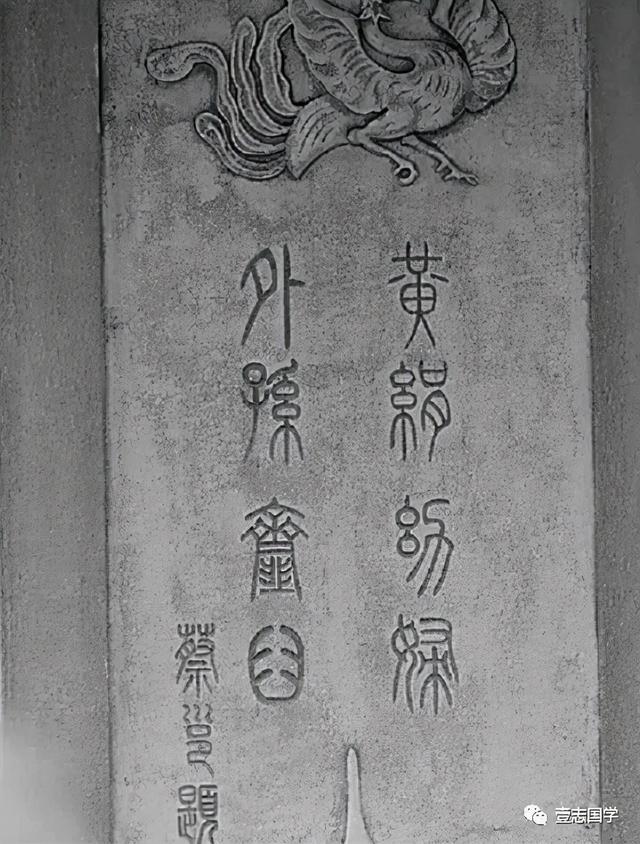 黄絹幼婦
外孫齏臼
蔡邕題
壹志国学